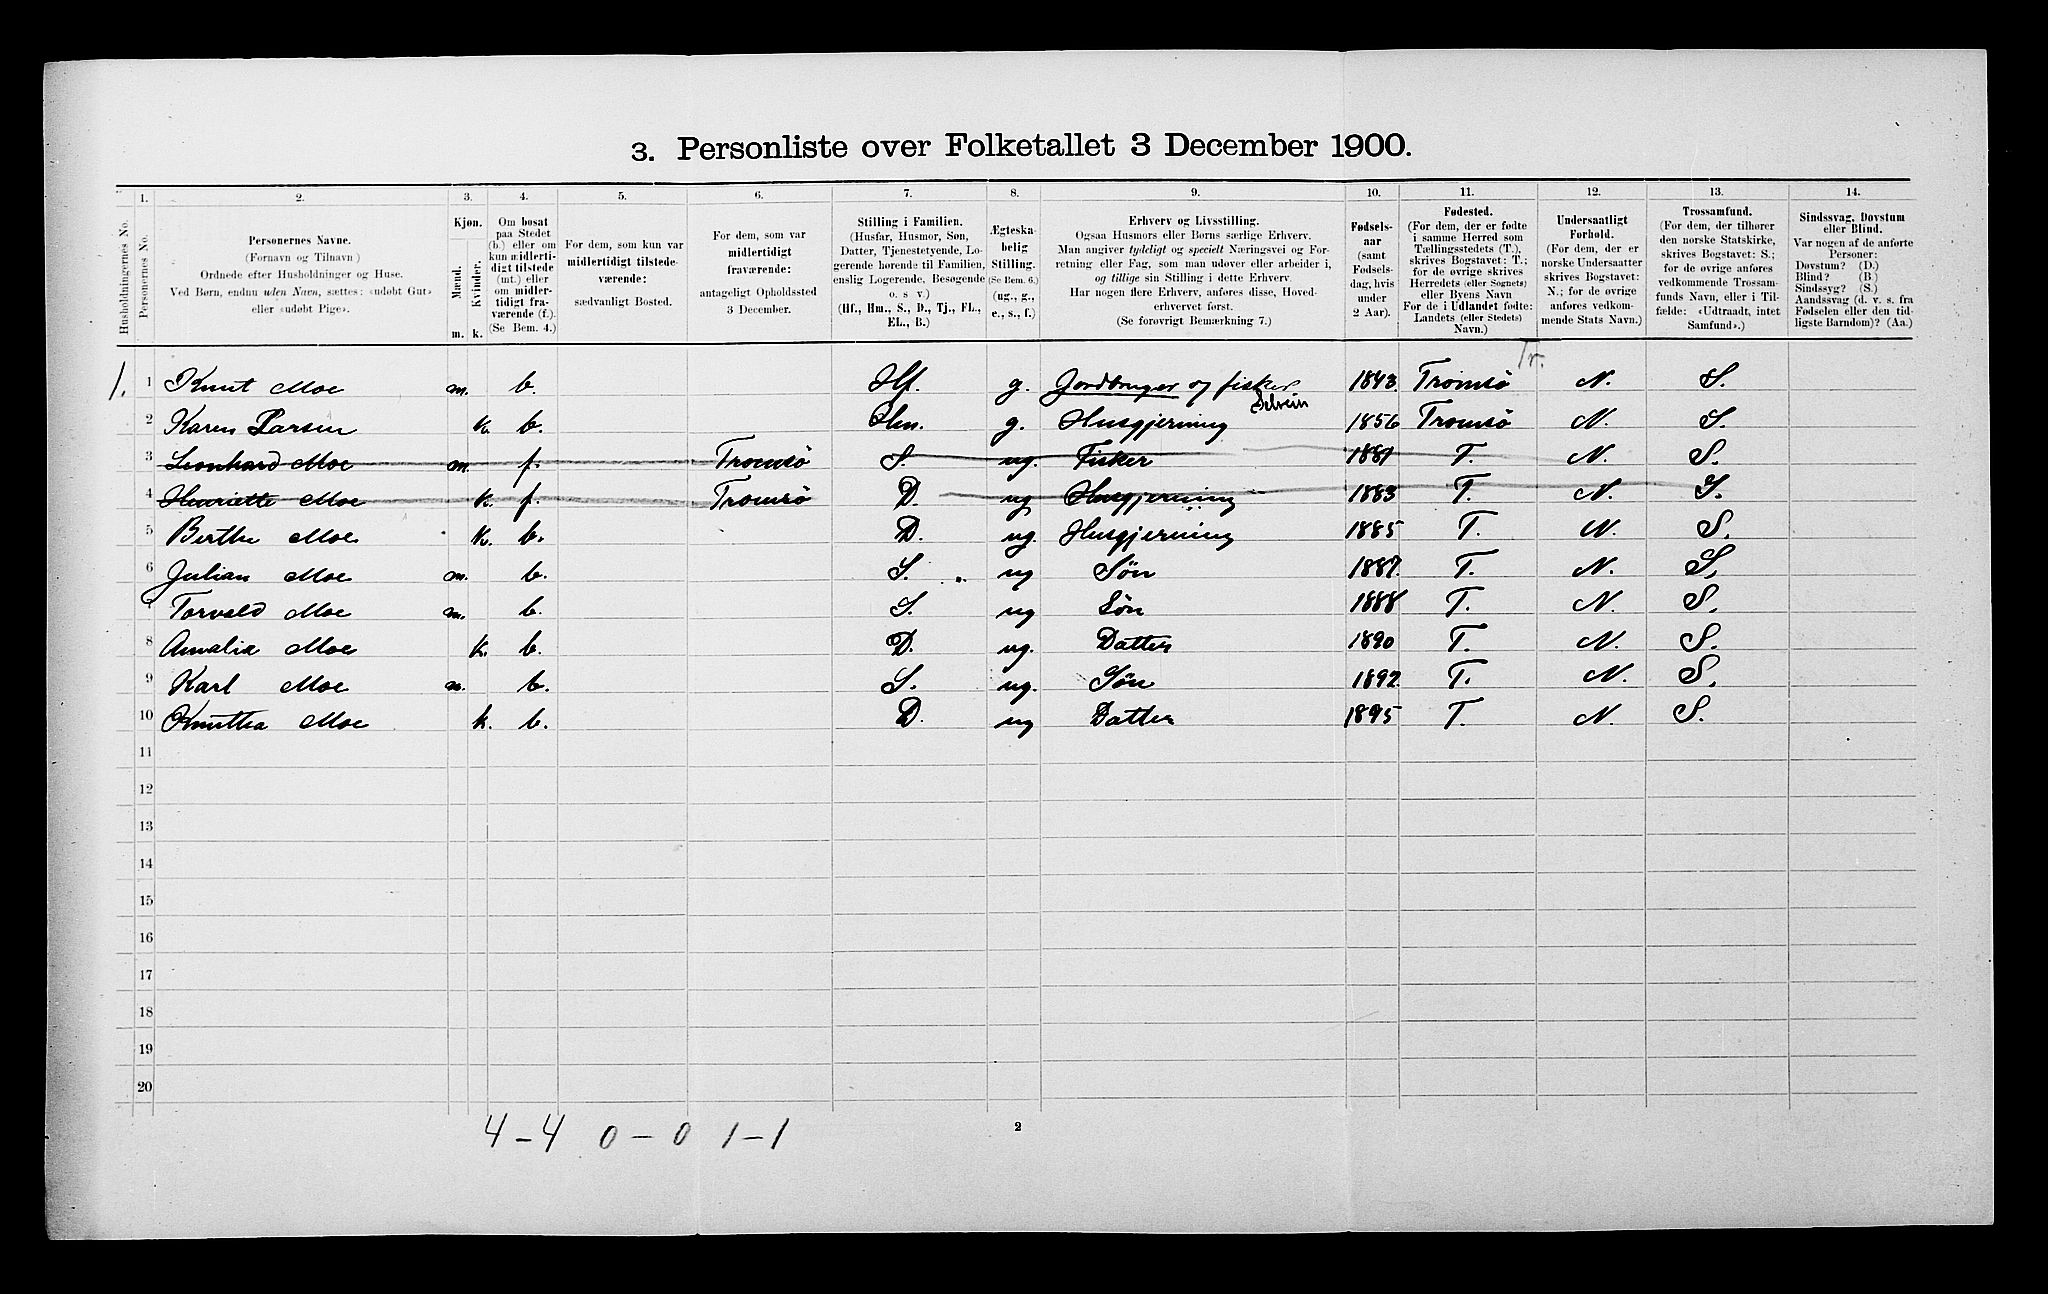 3. Personliste over Folketallet 3 December 1900.
1. 2. 3. 4. 5. 6. 7. 8. 9. 10. 11. 12. 13. 14.
Husholdningernes No.
Personernes No.
Personernes Navne.
(Fornavn og Tilnavn)
Ordnede efter Husholdninger og Huse.
Ved Børn, endnu uden Navn, sættes: «udøbt Gut»
eller «udøbt Pige».
Kjøn.
Mænd.
Kvinder.
m. k.
Om bosat
paa Stedet
(b.) eller om
kun midlerti-
digt tilstede
(mt.) eller
om midler-
tidigt fra-
værende (f.).
(Se Bem. 4.)
For dem, som kun var
midlertidigt tilstede-
værende:
sædvanligt Bosted.
For dem, som var
midlertidigt
fraværende:
antageligt Opholdssted
3 December.
Stilling i Familien.
(Husfar, Husmor, Søn,
Datter, Tjenestetyende, Lo-
gerende hørende til Familien,
enslig Logerende, Besøgende
o. s. v.)
(Hf., Hm., S., D., Tj., FL.,
EL., B.)
Ægteska-
belig
Stilling.
(Se Bem. 6.)
(ug., g.,
e., s., f.)
Erhverv og Livsstilling.
Ogsaa Husmors eller Børns særlige Erhverv.
Man angiver tydeligt og specielt Næringsvei og For-
retning eller Fag, som man udøver eller arbeider i,
og tillige sin Stilling i dette Erhverv.
Har nogen flere Erhverv, anføres disse, Hoved-
erhvervet først.
(Se forøvrigt Bemærkning 7.)
Fødsels-
aar
(samt
Fødsels-
dag, hvis
under
2 Aar).
Fødested.
(For dem, der er fødte
i samme Herred som
Tællingsstedets (T.),
skrives Bogstavet: T.;
for de øvrige skrives
Herredets (eller Sognets)
eller Byens Navn
For de i Udlandet fødte:
Landets (eller Stedets)
Navn.)
Undersaatligt
Forhold.
(For dem, der er
norske Undersaatter
skrives Bogstavet:
N.; for de øvrige
anføres vedkom-
mende Stats Navn.)
Trossamfund.
(For dem, der tilhører
den norske Statskirke,
skrives Bogstavet: S.;
for de øvrige anføres
vedkommende Trossam-
funds Navn, eller i Til-
fælde: «Udtraadt, intet
Samfund».)
Sindssvag, Døvstum
eller Blind.
Var nogen af de anførte
Personer:
Døvstum? (D.)
Blind? (B.)
Sindssyg? (S.)
Aandssvag (d. v. s. fra
Fødselen eller den tid-
ligste Barndom)? (Aa.)
Tr.
1. 1 Knut Moe m. b. Hf. g. Jordbruger og fisker 1843 Tromsö N. S.
Selveier
2 Karen Larsen k. b. Hm. g. Husgjerning 1856 Tromsö N. S.
3 Leonhard Moe m. f. Tromsö S. ug. Fisker 1881 T. N. S.
4 Henriette Moe k. f. Tromsö D. ug Husgjerning 1883 T. N. S.
5 Berthe Moe k. b. D. ug. Husgjerning 1885 T. N. S.
6 Julian Moe m. b. S. ug Sön 1887. T. N. S.
7 Torvald Moe m. b. S. ug Sön 1888 T. N. S.
8 Amalie Moe k. b. D. ug. Datter 1890 T. N. S.
9 Karl Moe m. b. S. ug. Sön 1892 T. N. S.
10 Knutha Moe k. b. D. ug Datter 1895 T. N. S.
11
12
13
14
15
16
17
18
19
20
4-4 0-0 1-1
2